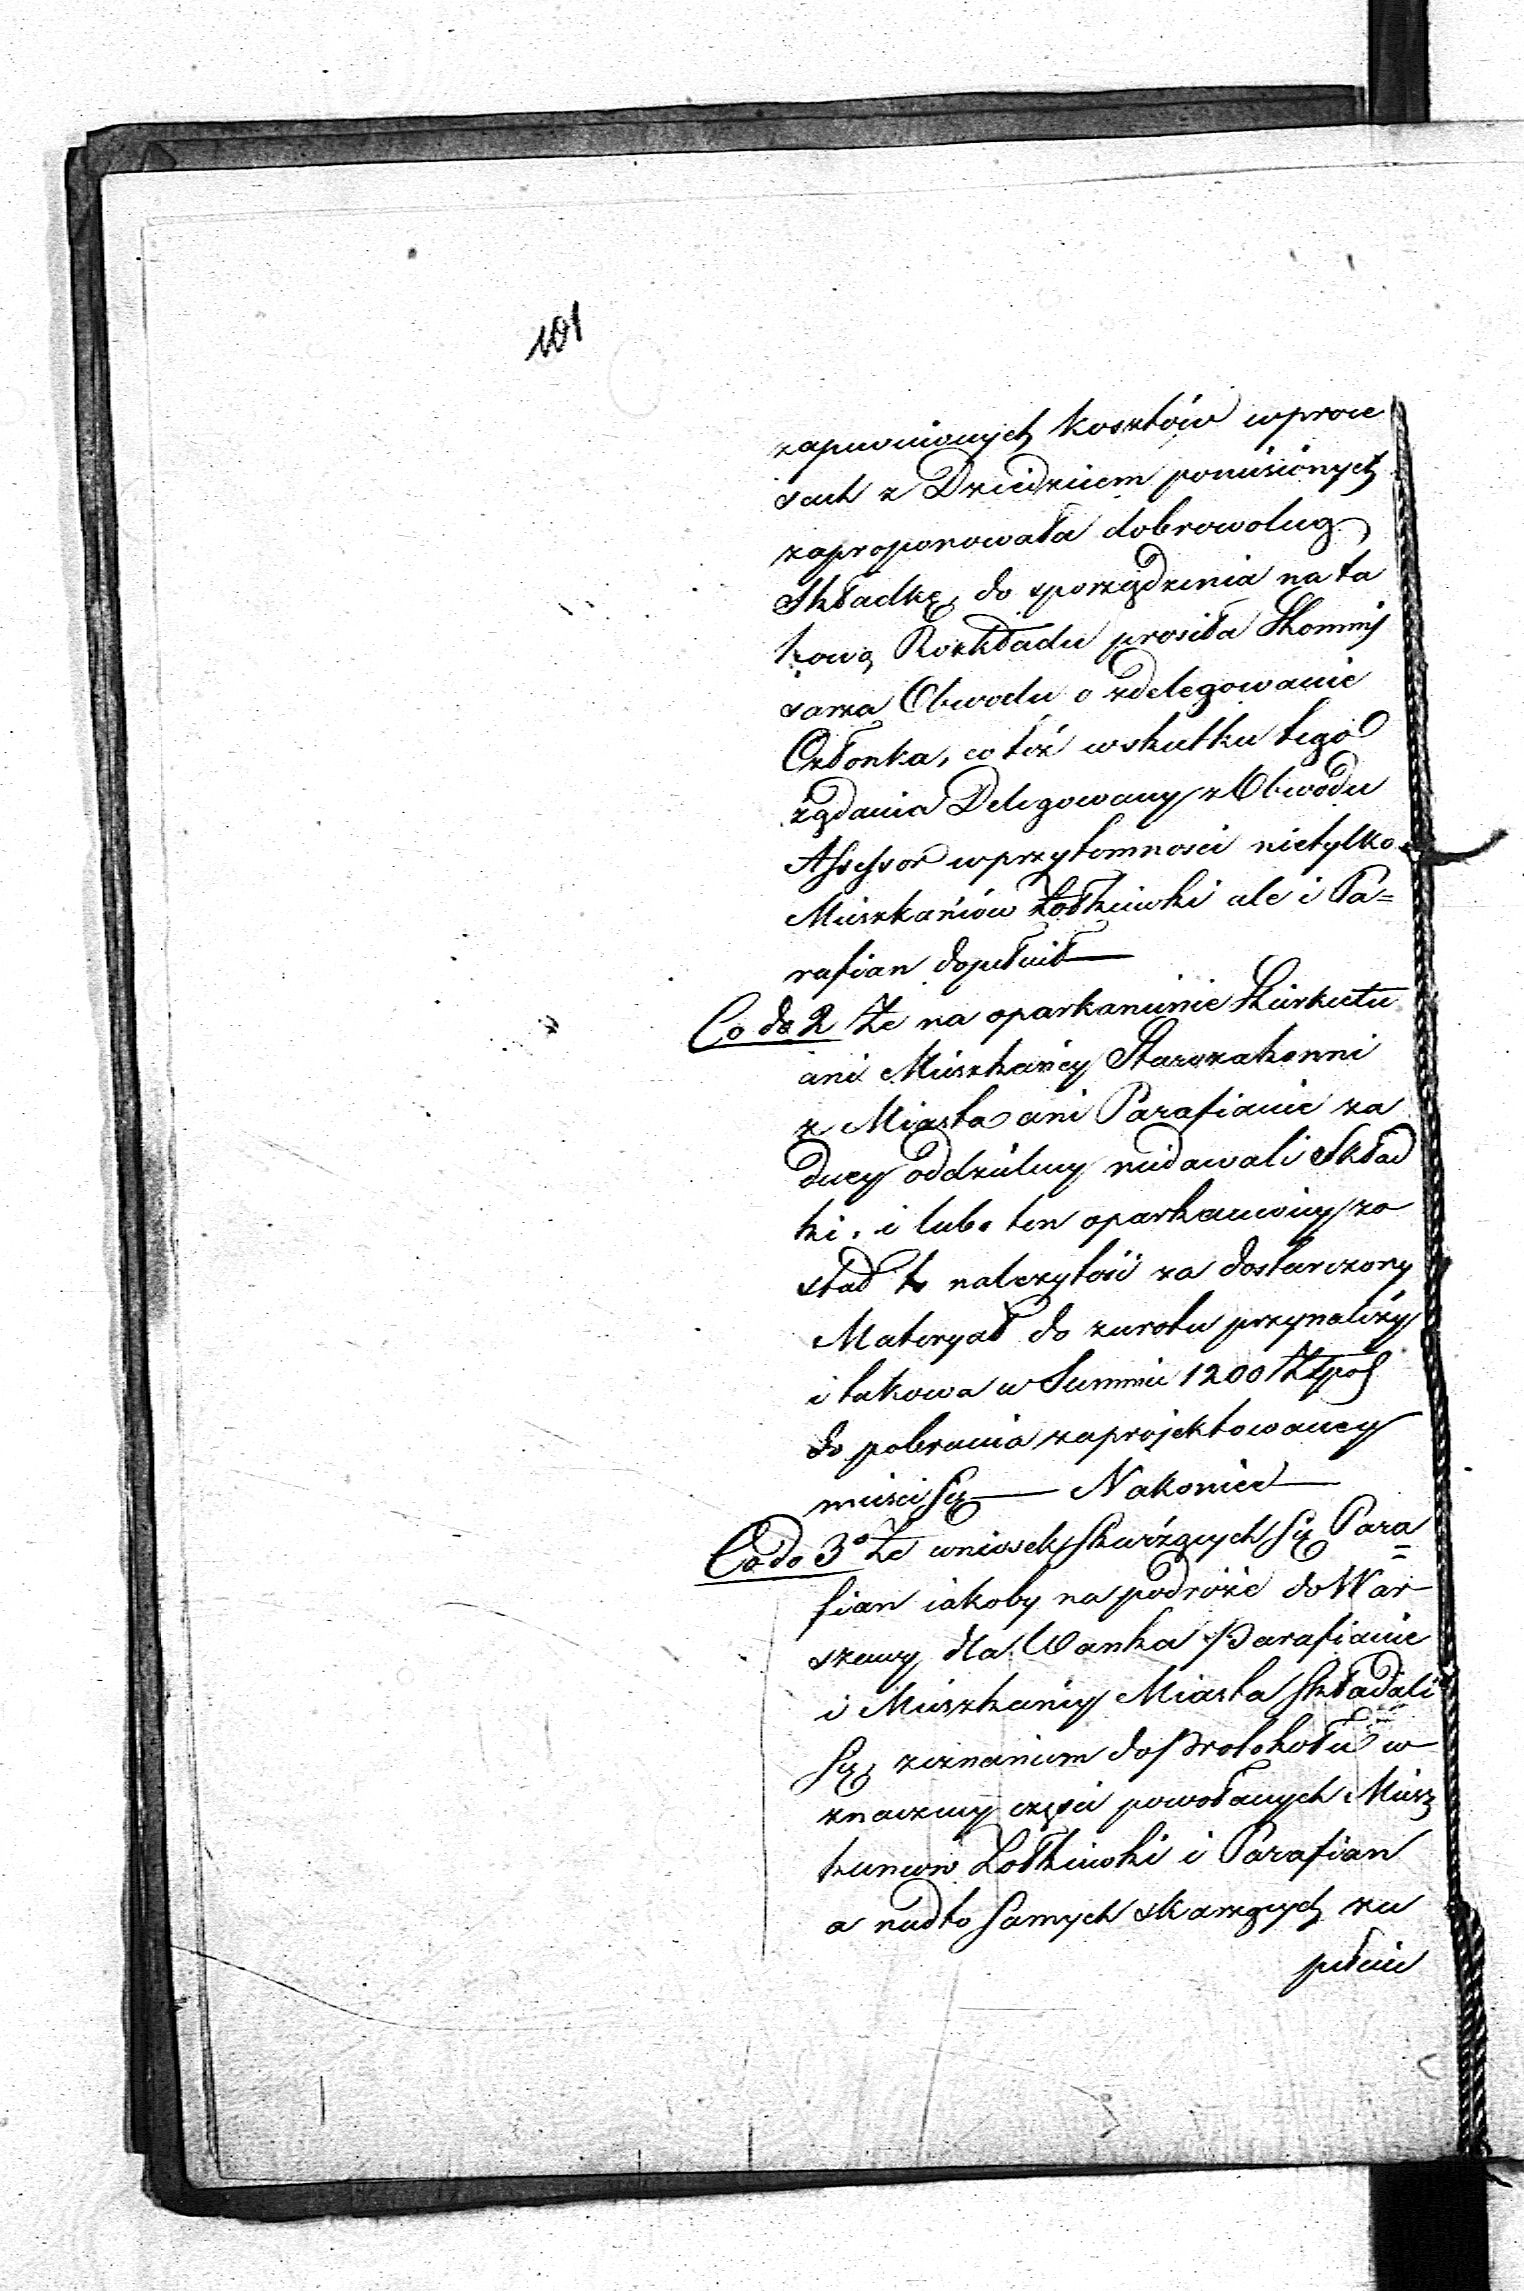 101
zapewnionych kosztów w proce
sach z Dziedzicem poniesionych
zaproponowała dobrowolną
Składkę, do sporządzenia na ta
kową Rozkładu prosiła Kommis
sarza Obwodu o zdelegowanie
Członka, co też w skutku tego
żądania Delegowany z Obwodu
Assessor w przytomnosci nietylko
Mieszkańców Żołkiewki ale i Pa=
rafian dopełnił —
Co do 2 Że na oparkanienie Kirkutu
ani Mieszkańcy Starozakonni
z Miasta ani Parafianie ża
dney oddzielney niedawali Skład
ki, i lubo ten oparkaniony zo
stał to należytość za dostarczony
Materyał do zwrotu przynależy
i takowa w Summie 1200 Złpol
do pobrania zaprojektowaney
mieści się — Nakoniec —
Co do 3º Że wniosek skarżących się Para=
fian iakoby na podróże do War
szawy dla Wanka Parafianie
i Mieszkańcy Miasta składali
się, zeznaniem do Protokołu w
znaczney części powołanych Miesz
kancow Żołkiewki i Parafian
a nadto samych skarżących zu
pełnie